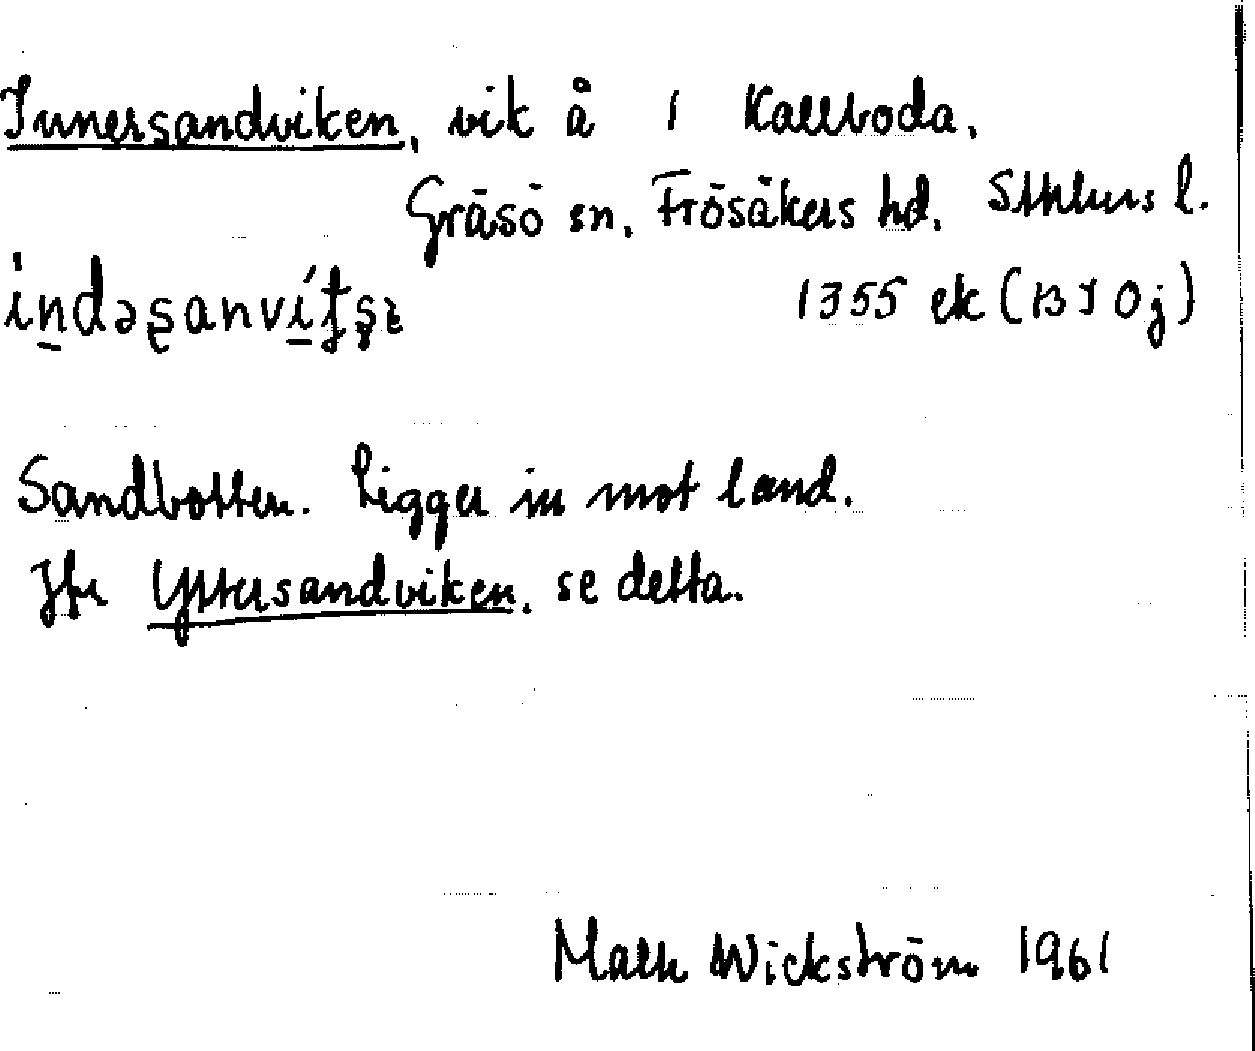 Innersandviken, vik å 1 Kallboda,
Gräsö sn, Frösåkers hd. Sthlms l.
1355 ek (13I 0j)
Sandbotten. Ligger in mot land.
Jfr Yttersandviken, se detta.
Wickström 1961